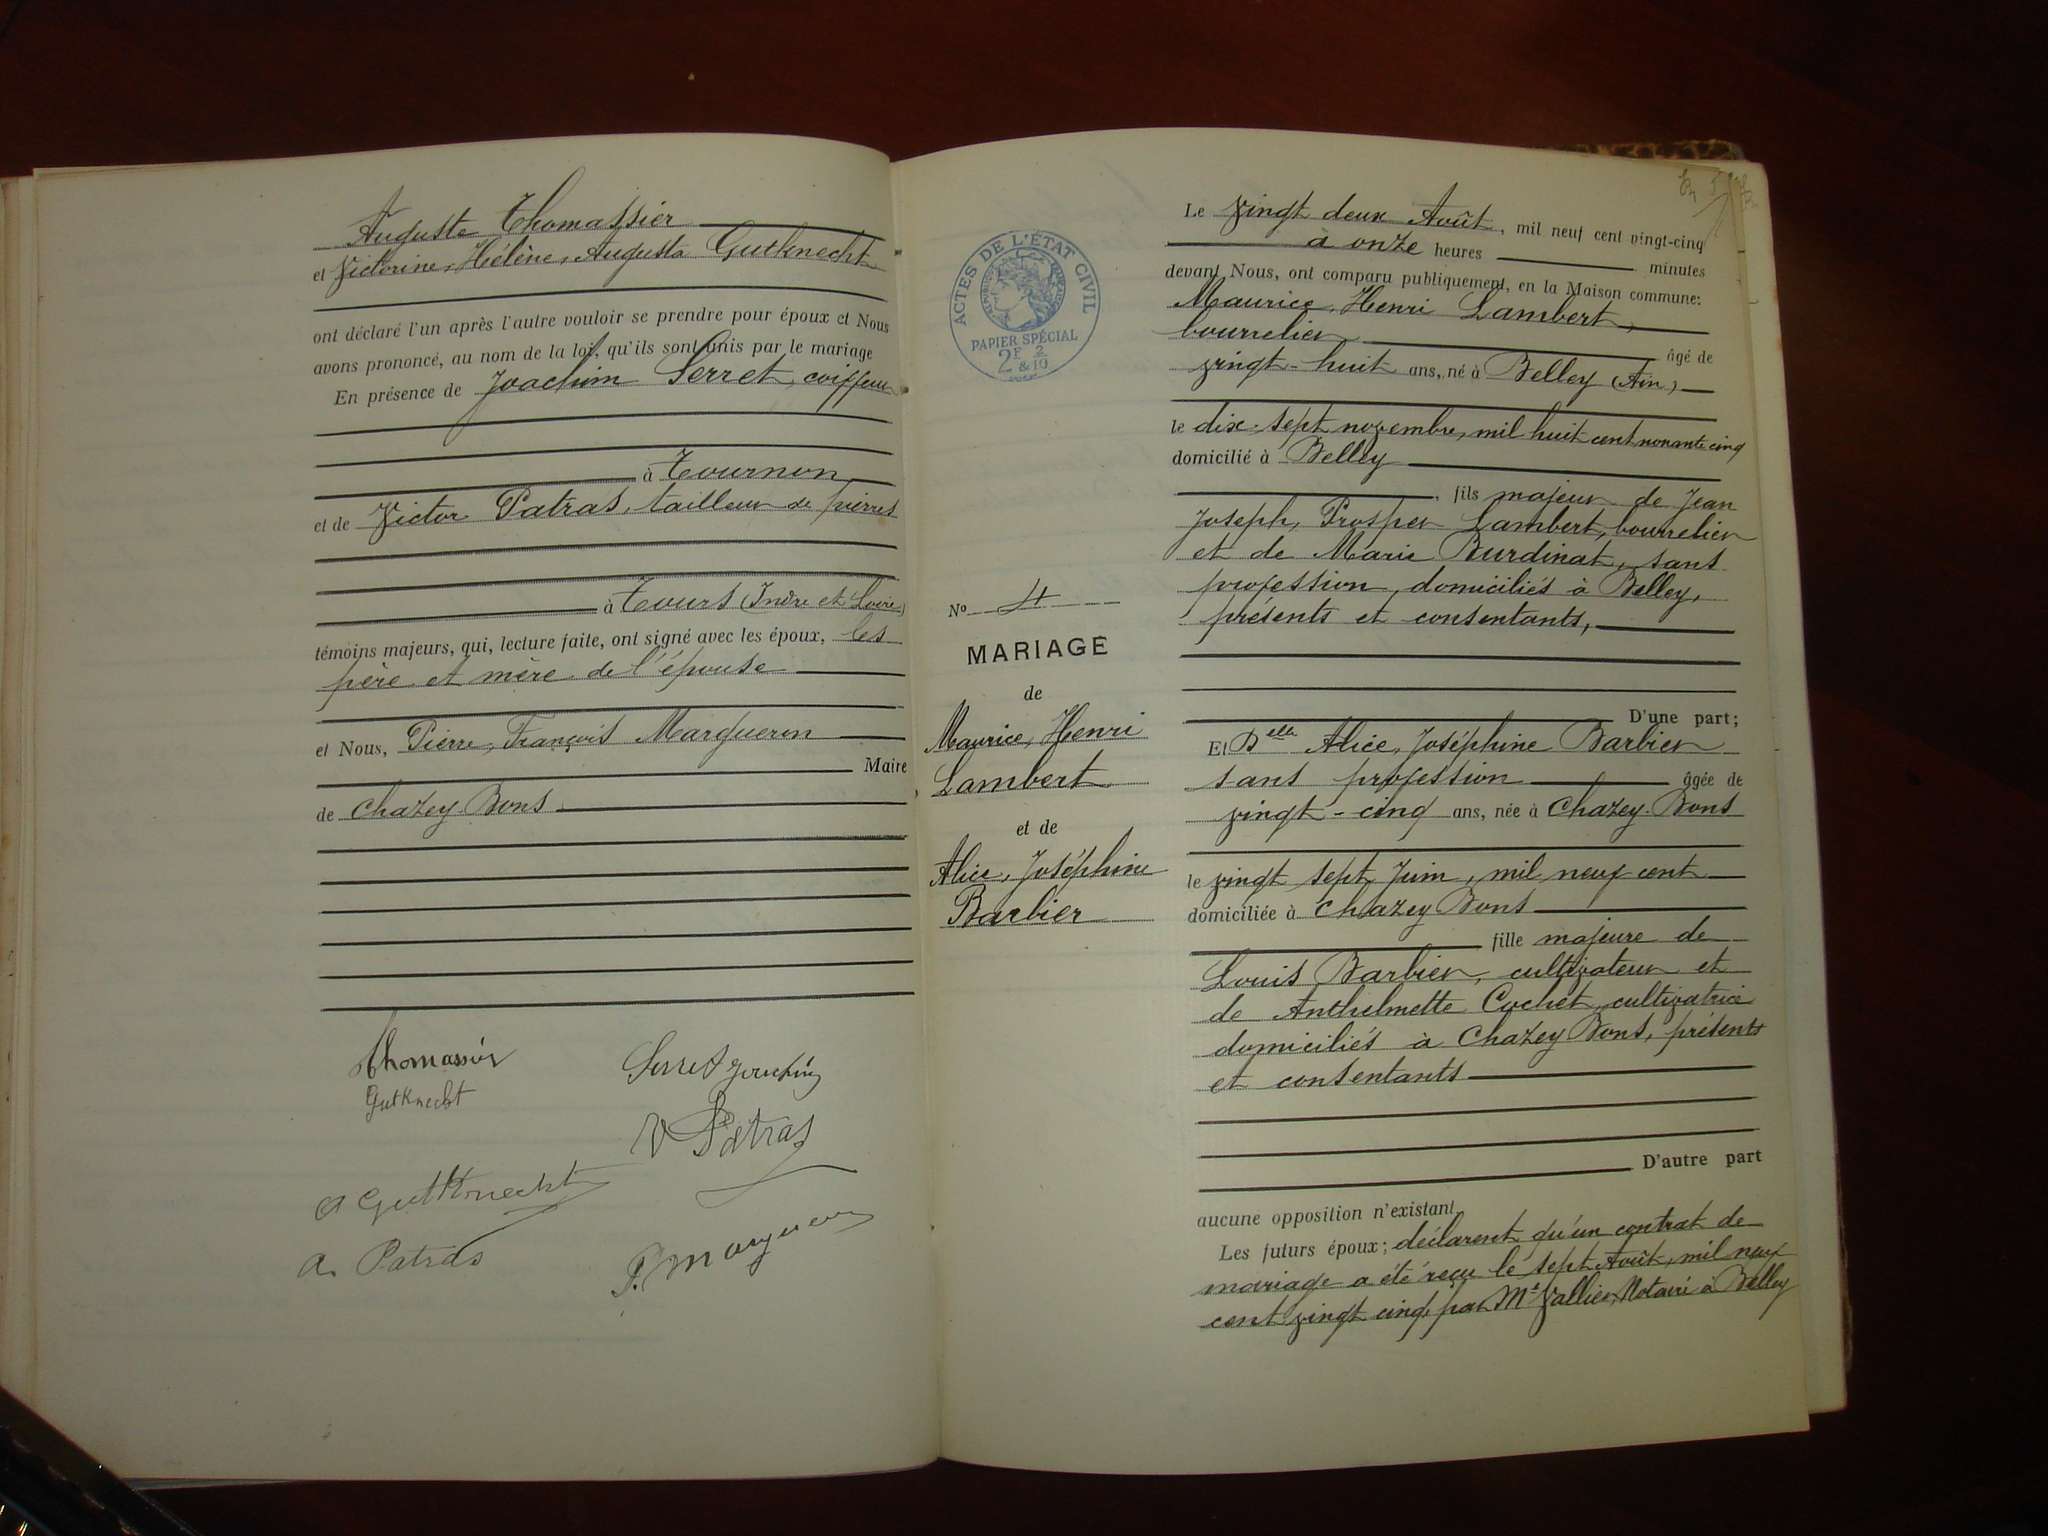 Auguste Thomassier
et Victorine, Hélène, Augusta Gutknecht
ont déclaré l'un après l'autre vouloir se prendre pour époux et Nous
avons prononcé, au nom de la loi, qu'ils sont unis par le mariage
En présence de Joachim Serret, coiffeur
à Tournon
et de Victor Patras, tailleur de pierres
à Tours (Indre et Loire)
témoins majeurs, qui, lecture faite, ont signé avec les époux, les
père et mère de l'épouse
et Nous, Pierre, François Marqueron
Maire
de Chazey-Bons
Thomassier
Gutknecht
Serret Joachin
V Patras
A Gutknecht
A. Patras
P. Marqueron
ACTES DE L'ÉTAT CIVIL
PAPIER SPÉCIAL
2F 2
& 10
No 4
MARIAGE
de
Maurice, Henri
Lambert
et de
Alice, Joséphine
Barbier
Le vingt deux Août, mil neuf cent vingt-cinq
à onze heures minutes
devant Nous, ont comparu publiquement, en la Maison commune:
Maurice, Henri Lambert,
bourrelier âgé de
vingt-huit ans, né à Belley (Ain)
le dix-sept novembre, mil huit cent nonante cinq
domicilié à Belley
, fils majeur de Jean
Joseph, Prosper Lambert, bourrelier
et de Marie Burdinat, sans
profession, domiciliés à Belley,
présents et consentants,
D'une part;
Et Delle Alice, Joséphine Barbier
sans profession âgée de
vingt-cinq ans, née à Chazey-Bons
le vingt sept Juin, mil neuf cent
domiciliée à Chazey Bons
fille majeure de
Louis Barbier, cultivateur et
de Anthelmette Cochet, cultivatrice
domiciliés à Chazey Bons, présents
et consentants
D'autre part
aucune opposition n'existant
Les futurs époux; déclarent qu'un contrat de
mariage a été reçu le sept Août, mil neuf
cent vingt cinq par Me Vallier, Notaire à Belley